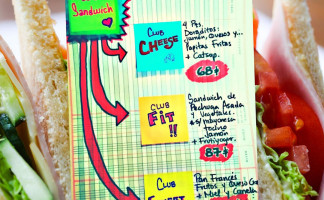 Sandwich
Club
CHEESE
4 Pzs.
Doraditos:
Jamón, Quesos y...
Papitas Fritas
+ Catsup.
68¢
Club
Fit
!!
Sandwich de
Pechuga Asada
y Vegetales.
tocino
Jamón
+ Frutiyogur.
87¢
Club
Pan Francés
Frutos y Queso
+ Miel y Canela